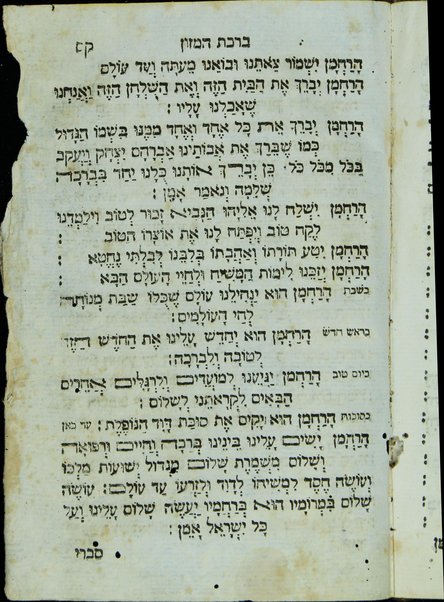 ברכת המזון
הָרַחֲמָן יִשְׁמוֹר צֵאתֵנוּ וּבוֹאֵנוּ מֵעַתָּה וְעַד עוֹלָם
הָרַחֲמָן יְבָרֵךְ אֶת הַבַּיִת הַזֶּה וְאֶת הַשֻּׁלְחָן הַזֶּה וַאֲנַחְנוּ
שֶׁאָכַלְנוּ עָלָיו :
הָרַחֲמָן יְבָרֵךְ אֶת כָּל אֶחָד וְאֶחָד מִמֶּנּוּ בִּשְׁמוֹ הַגָּדוֹל
כְּמוֹ שֶׁבֵּרַךְ אֶת אֲבוֹתֵינוּ אַבְרָהָם יִצְחָק וְיַעֲקֹב
בַּכֹּל מִכֹּל כֹּל ׃ כֵּן יְבָרֵךְ אוֹתָנוּ כֻּלָּנוּ יַחַד בִּבְרָכָה
שְׁלֵמָה וְנֹאמַר אָמֵן :
הָרַחֲמָן יִשְׁלַח לָנוּ אֵלִיָּהוּ הַנָּבִיא זָכוּר לַטּוֹב וִילַמְּדֵנוּ
לֶקַח טוֹב וְיִפְתַּח לָנוּ אֶת אוֹצָרוֹ הַטּוֹב
הָרַחֲמָן יִטַּע תּוֹרָתוֹ וְאַהֲבָתוֹ בְּלִבֵּנוּ לְבִלְתִּי נֶחֱטָא
הָרַחֲמָן יְזַכֵּנוּ לִימוֹת הַמָּשִׁיחַ וּלְחַיֵּי הָעוֹלָם הַבָּא
בשבת הָרַחֲמָן הוּא יַנְחִילֵנוּ עוֹלָם שֶׁכֻּלּוֹ שַׁבָּת מְנוּחָה
לְחֵי הָעוֹלָמִים :
בראש חדש הָרַחֲמָן הוּא יְחַדֵּשׁ עָלֵינוּ אֶת הַחֹדֶשׁ הַזֶּה
לְטוֹבָה וְלִבְרָכָה :
ביום טוב הָרַחֲמָן יַגִּיעֵנוּ לְמוֹעֲדִים וְלִרְגָלִים אֲחֵרִים
הַבָּאִים לִקְרָאתֵנוּ לְשָׁלוֹם :
בסוכות הָרַחֲמָן הוּא יָקִים אֶת סוּכַּת דָּוִד הַנּוֹפֶלֶת : עד כאן
הָרַחֲמָן יָשִׂים עָלֵינוּ בֵּינֵינוּ בְּרָכָה וְחַיִּים וּרְפוּאָה
וְשָׁלוֹם מִשְׁמֶרֶת שָׁלוֹם מִגְדּוֹל יְשׁוּעוֹת מַלְכּוֹ
וְעוֹשֶׂה חֶסֶד לִמְשִׁיחוֹ לְדָוִד וּלְזַרְעוֹ עַד עוֹלָם : עוֹשֶׂה
שָׁלוֹם בִּמְרוֹמָיו הוּא בְּרַחֲמָיו יַעֲשֶׂה שָׁלוֹם עָלֵינוּ וְעַל
כָּל יִשְׂרָאֵל אָמֵן :
סברי